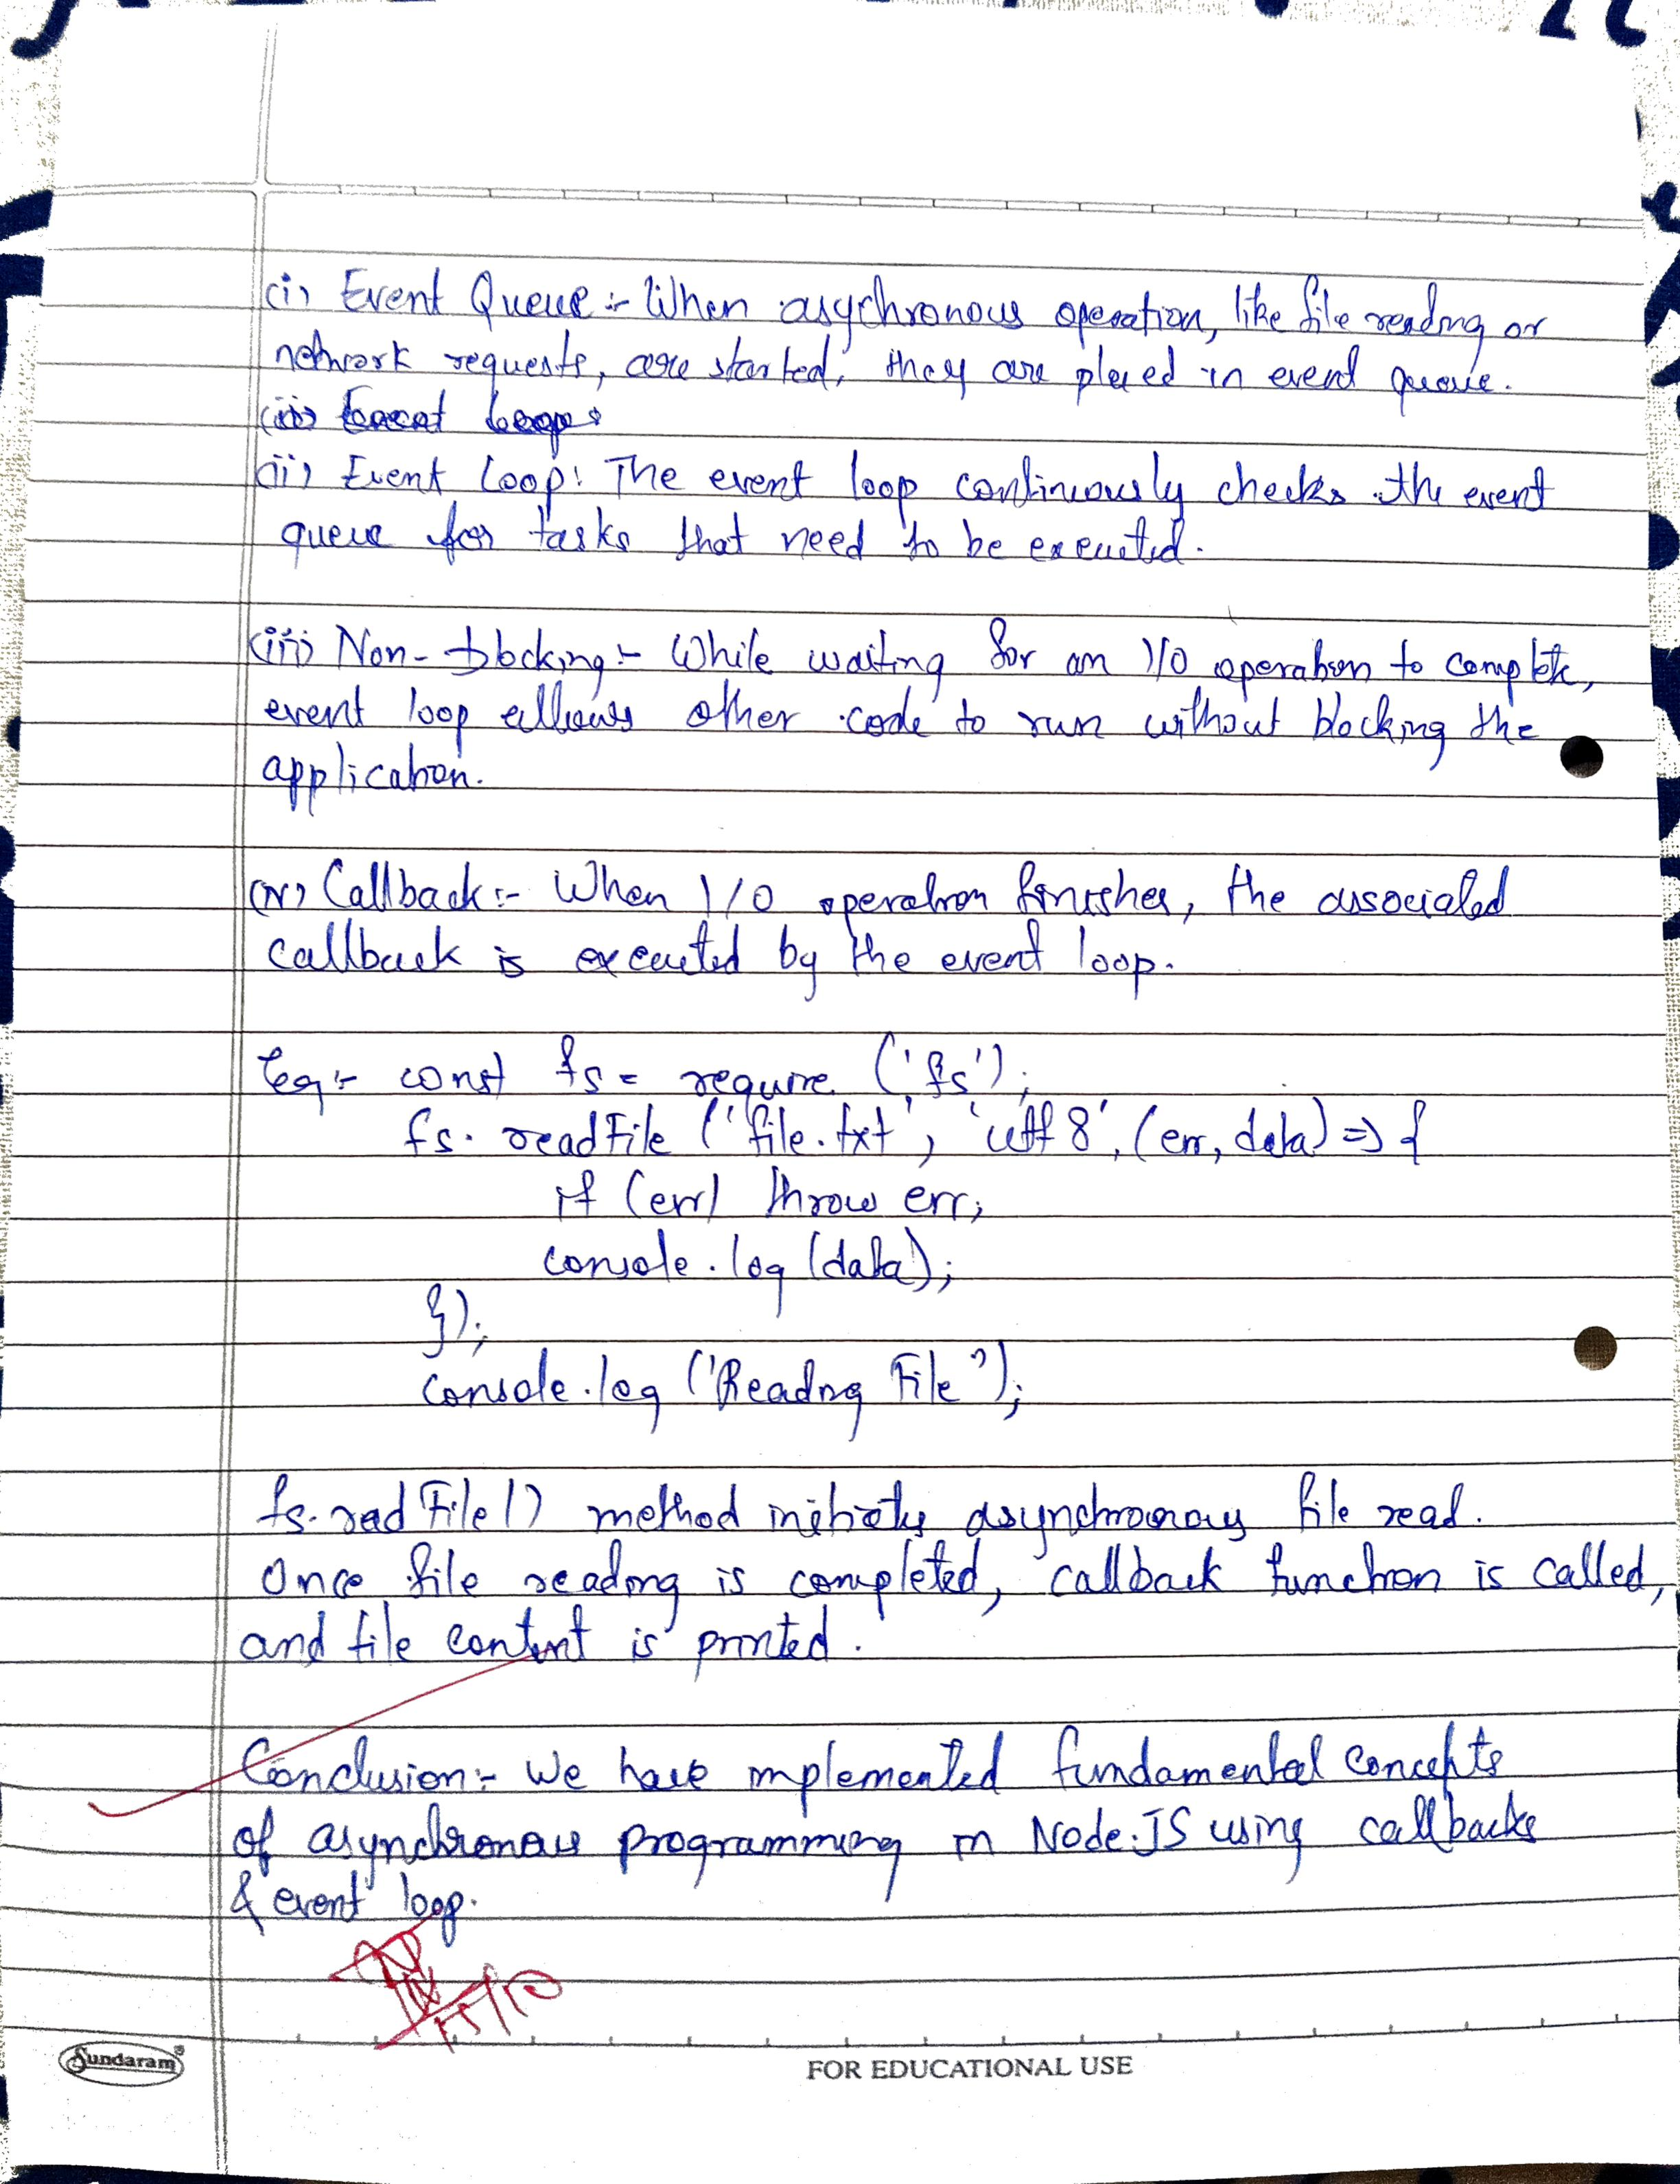 (i) Event Queue :- When asychronous operation, like file reading or
network requests, are started, they are placed in event queue.
(ii) Event loop:
(ii) Event Loop: The event loop continuously checks the event
queue for tasks that need to be executed.
(iii) Non-blocking :- While waiting for an I/O operation to complete,
event loop allows other code to run without blocking the
application.
(iv) Callback :- When I/O operation finishes, the associated
callback is executed by the event loop.
Eg:- const fs = require ('fs');
fs. readFile ('file.txt', 'utf8', (err, data) => {
if (err) throw err;
console.log (data);
});
console.log ('Reading File');
fs.readFile() method initiates asynchronous file read.
Once file reading is completed, callback function is called,
and file content is printed.
Conclusion:- We have implemented fundamental concepts
of asynchronous programming in Node.JS using callbacks
& event loop.
Sundaram
FOR EDUCATIONAL USE